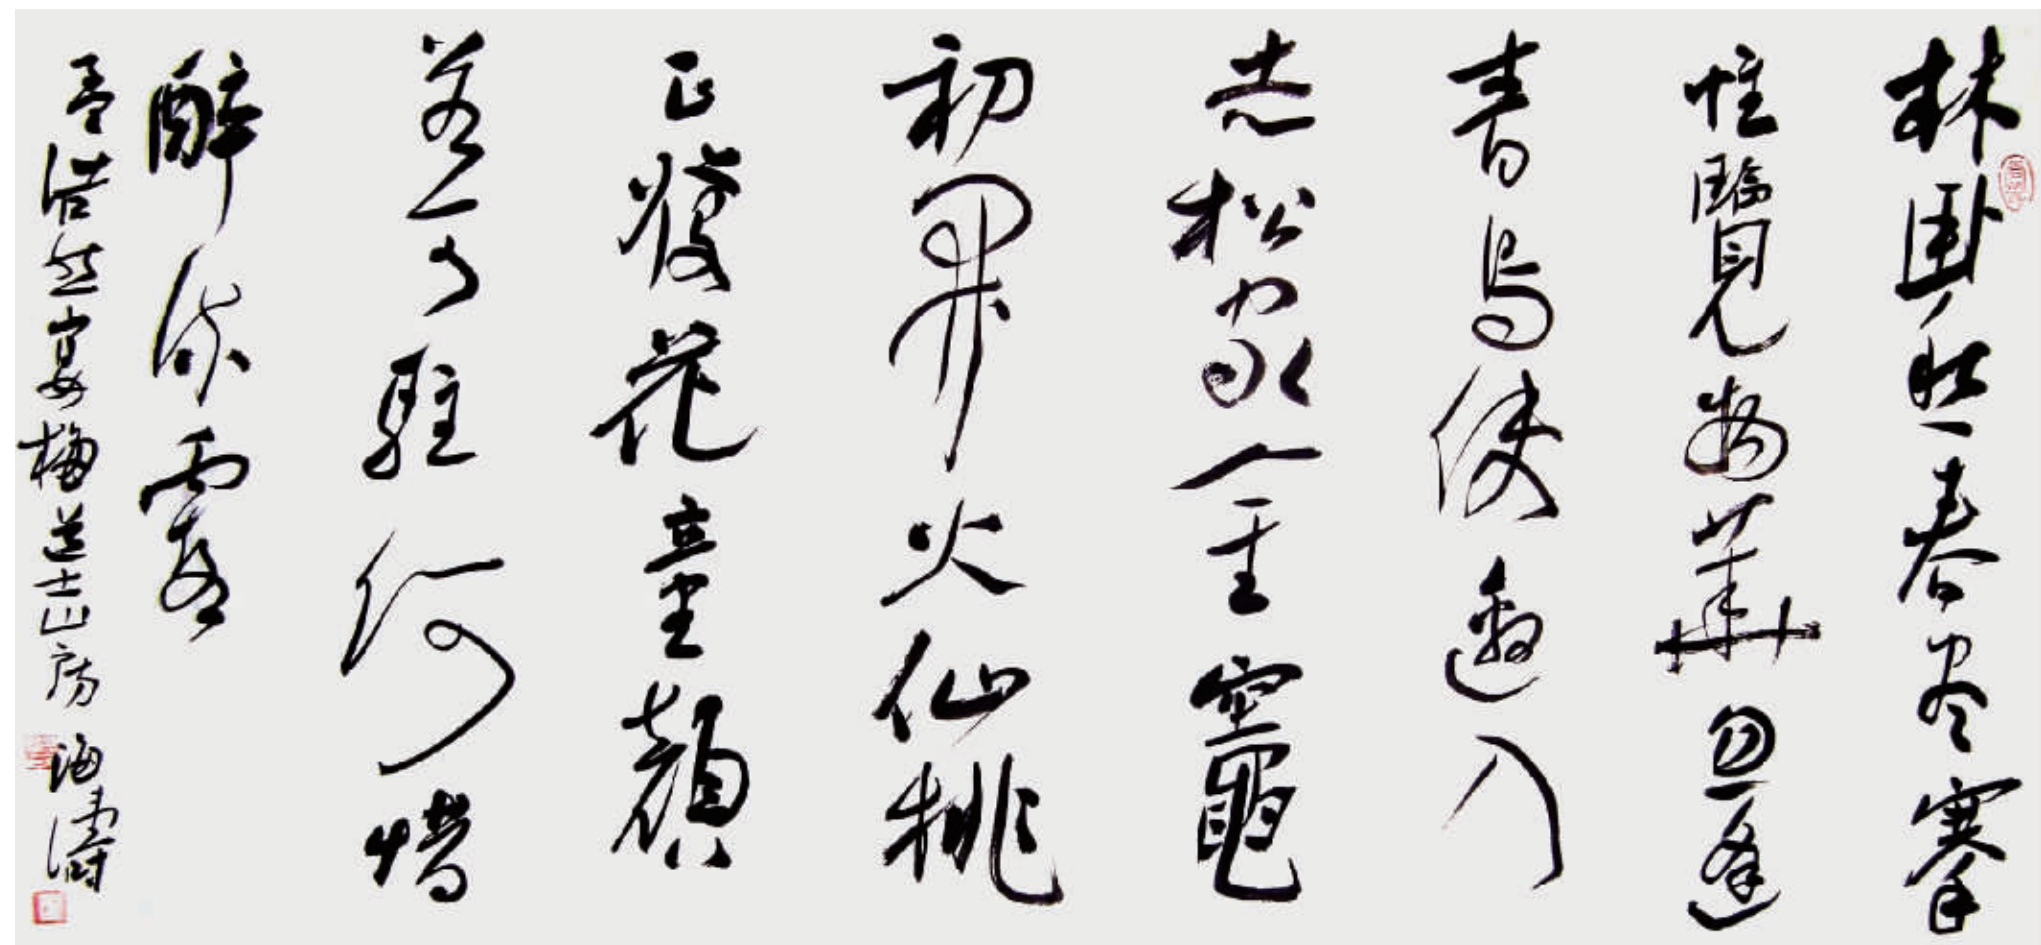 林臥愁春尽搴
帷覽物華忽逢
青鸟使邀入
赤松家金竈
初開火仙桃
正發花童顏
若可駐何惜
醉流霞
孟浩然宴梅道士山房 海濤